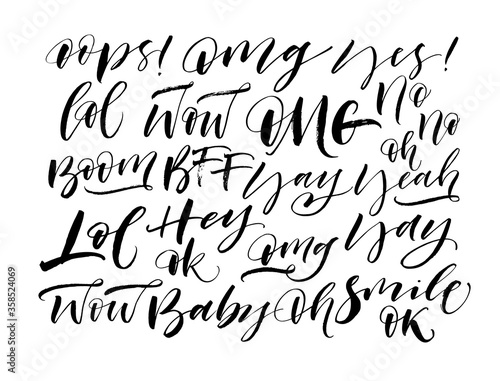 oops! omg yes!
lol wow OMG No No
Boom BFF yay oh yeah
Lol Hey ok omg yay
Wow Baby Oh smile OK
Adobe Stock | #358524069